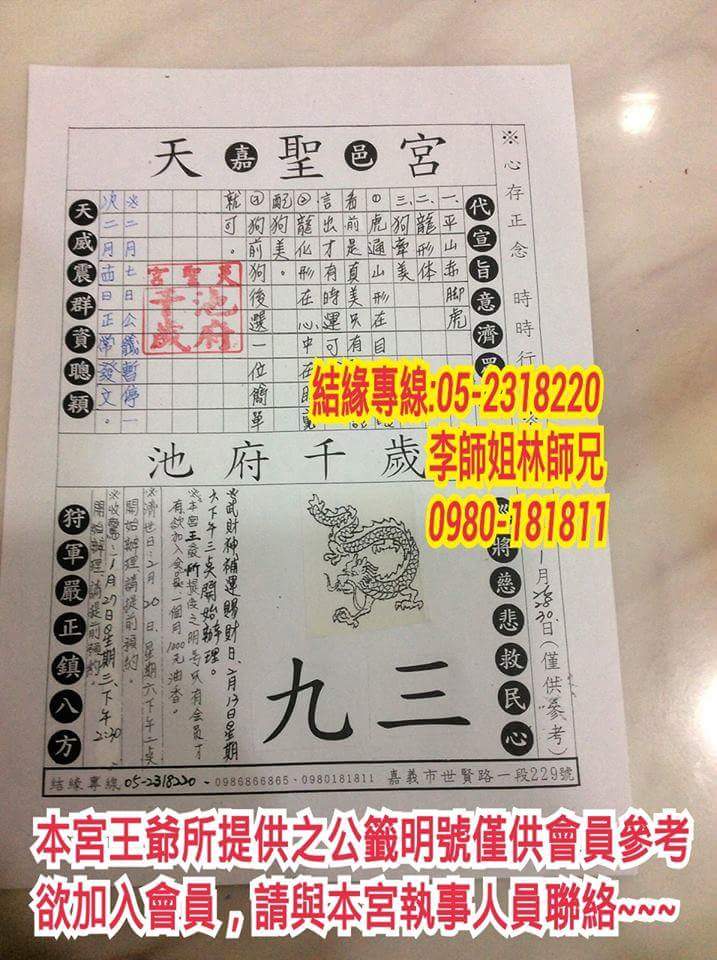 天嘉聖邑宮
※心存正念 時時行
※
代宣旨意濟眾
一、平山赤腳虎
二、龍形体
三、狗牽美
①虎通山形在目
看前是真美只有
言出才有時運可
②龍化形在心中在
配狗美。
狗前狗後選一位簡單
就可。
天聖宮
池府
千歲
※二月七日公籤暫停一
次二月 日正常發文。
天威震群資聰穎
結緣專線:05-2318220
李師姐林師兄
0980-181811
池府千歲
1月 30日(僅供參考)
將慈悲救民心
九三
※武財神補運賜財日、2月13日星期
六下午三點開始辦理。
※本宮王爺所提供之明号只有會員才
有欲加入會員一個月1000元油香。
※濟世日:2月20日、星期六下午二點
開始辦理請提前預約。
※收驚:1月27日星期三、下午2:30
開始辦理請提前預約。
狩軍嚴正鎮八方
結緣專線05-2318220、0986866865、0980181811 嘉義市世賢路一段229號
本宮王爺所提供之公籤明號僅供會員參考
欲加入會員,請與本宮執事人員聯絡~~~